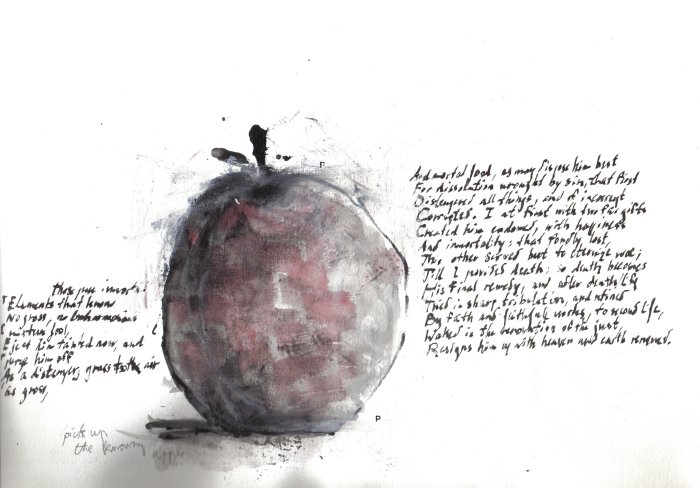 Those pure immortal
Elements that know
No gross, no unharmoneous
mixture fool,
Eject him tainted now, and
purge him off
As a distemper, gross to the air
as gross,
And mortal food, as may dispose him best
For dissolution wrought by sin, that first
Distempered all things, and of incorrupt
Corrupted. I at first with two fair gifts
Created him endowed, with happiness
And immortality: that fondly lost,
This other served but to eternize woe;
Till I provided death: so death becomes
His final remedy, and after death life
Tried in sharp tribulation, and refined
By faith and faithful works, to second life,
Waked in the renovation of the just,
Resigns him up with heaven and earth renewed.
picks up
the
apple
P